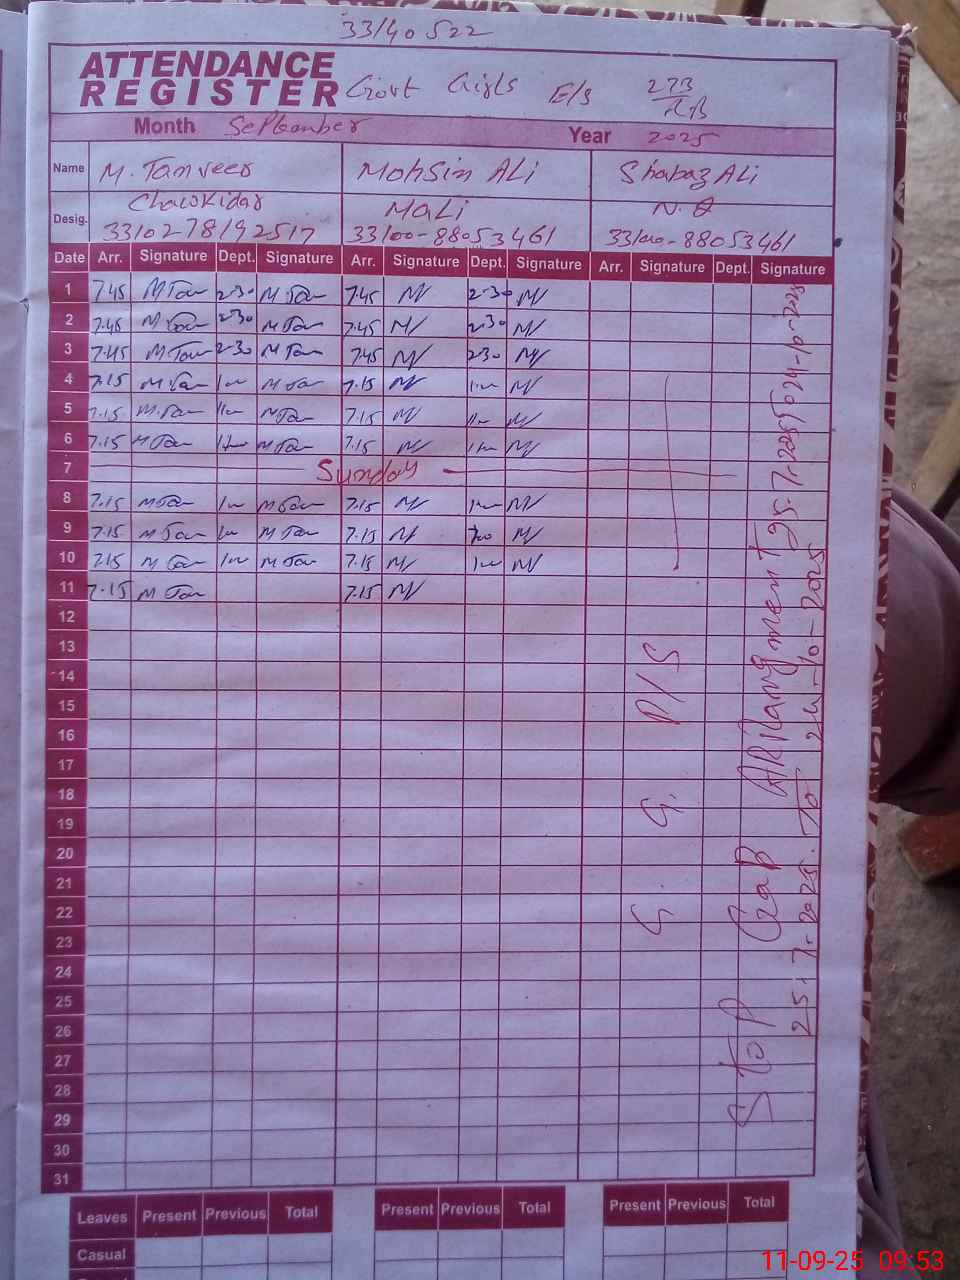 33/40522
ATTENDANCE
REGISTER Govt Girls E/s 273/R.B
Month September Year 2025
Name M. Tanveer Mohsin ALi Shabaz ALi
Desig. Chawkidar MaLi N.Q
3310278192517 33100-88053461 33100-88053461
Date Arr. Signature Dept. Signature Arr. Signature Dept. Signature Arr. Signature Dept. Signature
1 7.45 M Tan 2-30 M Tan 7.45 M 2-30 M
2 7.45 M Tan 2-30 M Tan 7.45 M 2-30 M
3 7.45 M Tan 2-30 M Tan 7.45 M 2-30 M
4 7.15 M Tan M Tan 7.15 M M
5 7.15 M Tan M Tan 7.15 M M
6 7.15 M Tan M Tan 7.15 M M
7 Sunday
8 7.15 M Tan M Tan 7.15 M M
9 7.15 M Tan M Tan 7.15 M M
10 7.15 M Tan M Tan 7.15 M M
11 7.15 M Tan 7.15 M
12
13
14
15
16
17
18
19
20
21
22
23
24
25
26
27
28
29
30
31
G. G. P/S
Stop GaP ARRangment 25.7.2025 To 24-10-2025
25.7.2025. To 24-10-2025
Leaves Present Previous Total Present Previous Total Present Previous Total
Casual
11-09-25 09:53